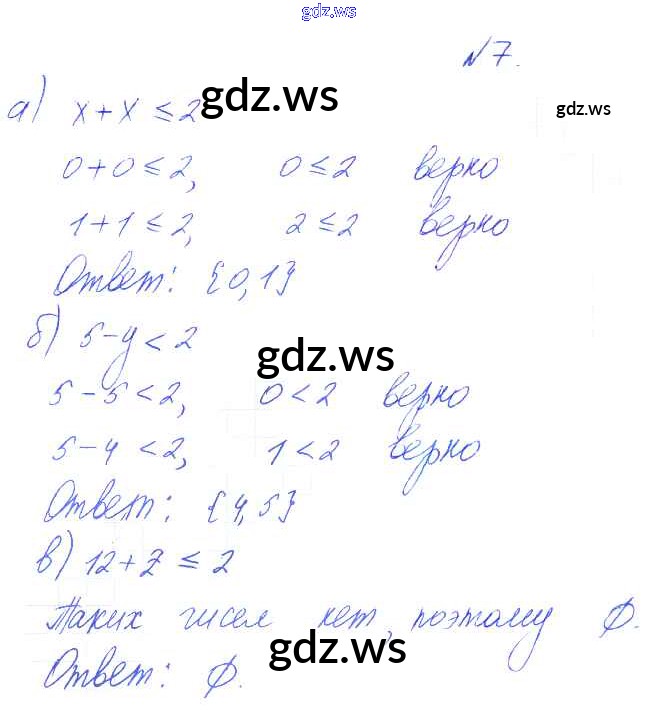 gdz.ws
№7.
а) x+x ≤ 2
gdz.ws
gdz.ws
0+0 ≤ 2, 0 ≤ 2 верно
1+1 ≤ 2, 2 ≤ 2 верно
Ответ: {0,1}
б) 5-y < 2
gdz.ws
5-5 < 2, 0 < 2 верно
5-4 < 2, 1 < 2 верно
Ответ: {4,5}
в) 12+z ≤ 2
Таких чисел нет, поэтому ∅.
gdz.ws
Ответ: ∅.